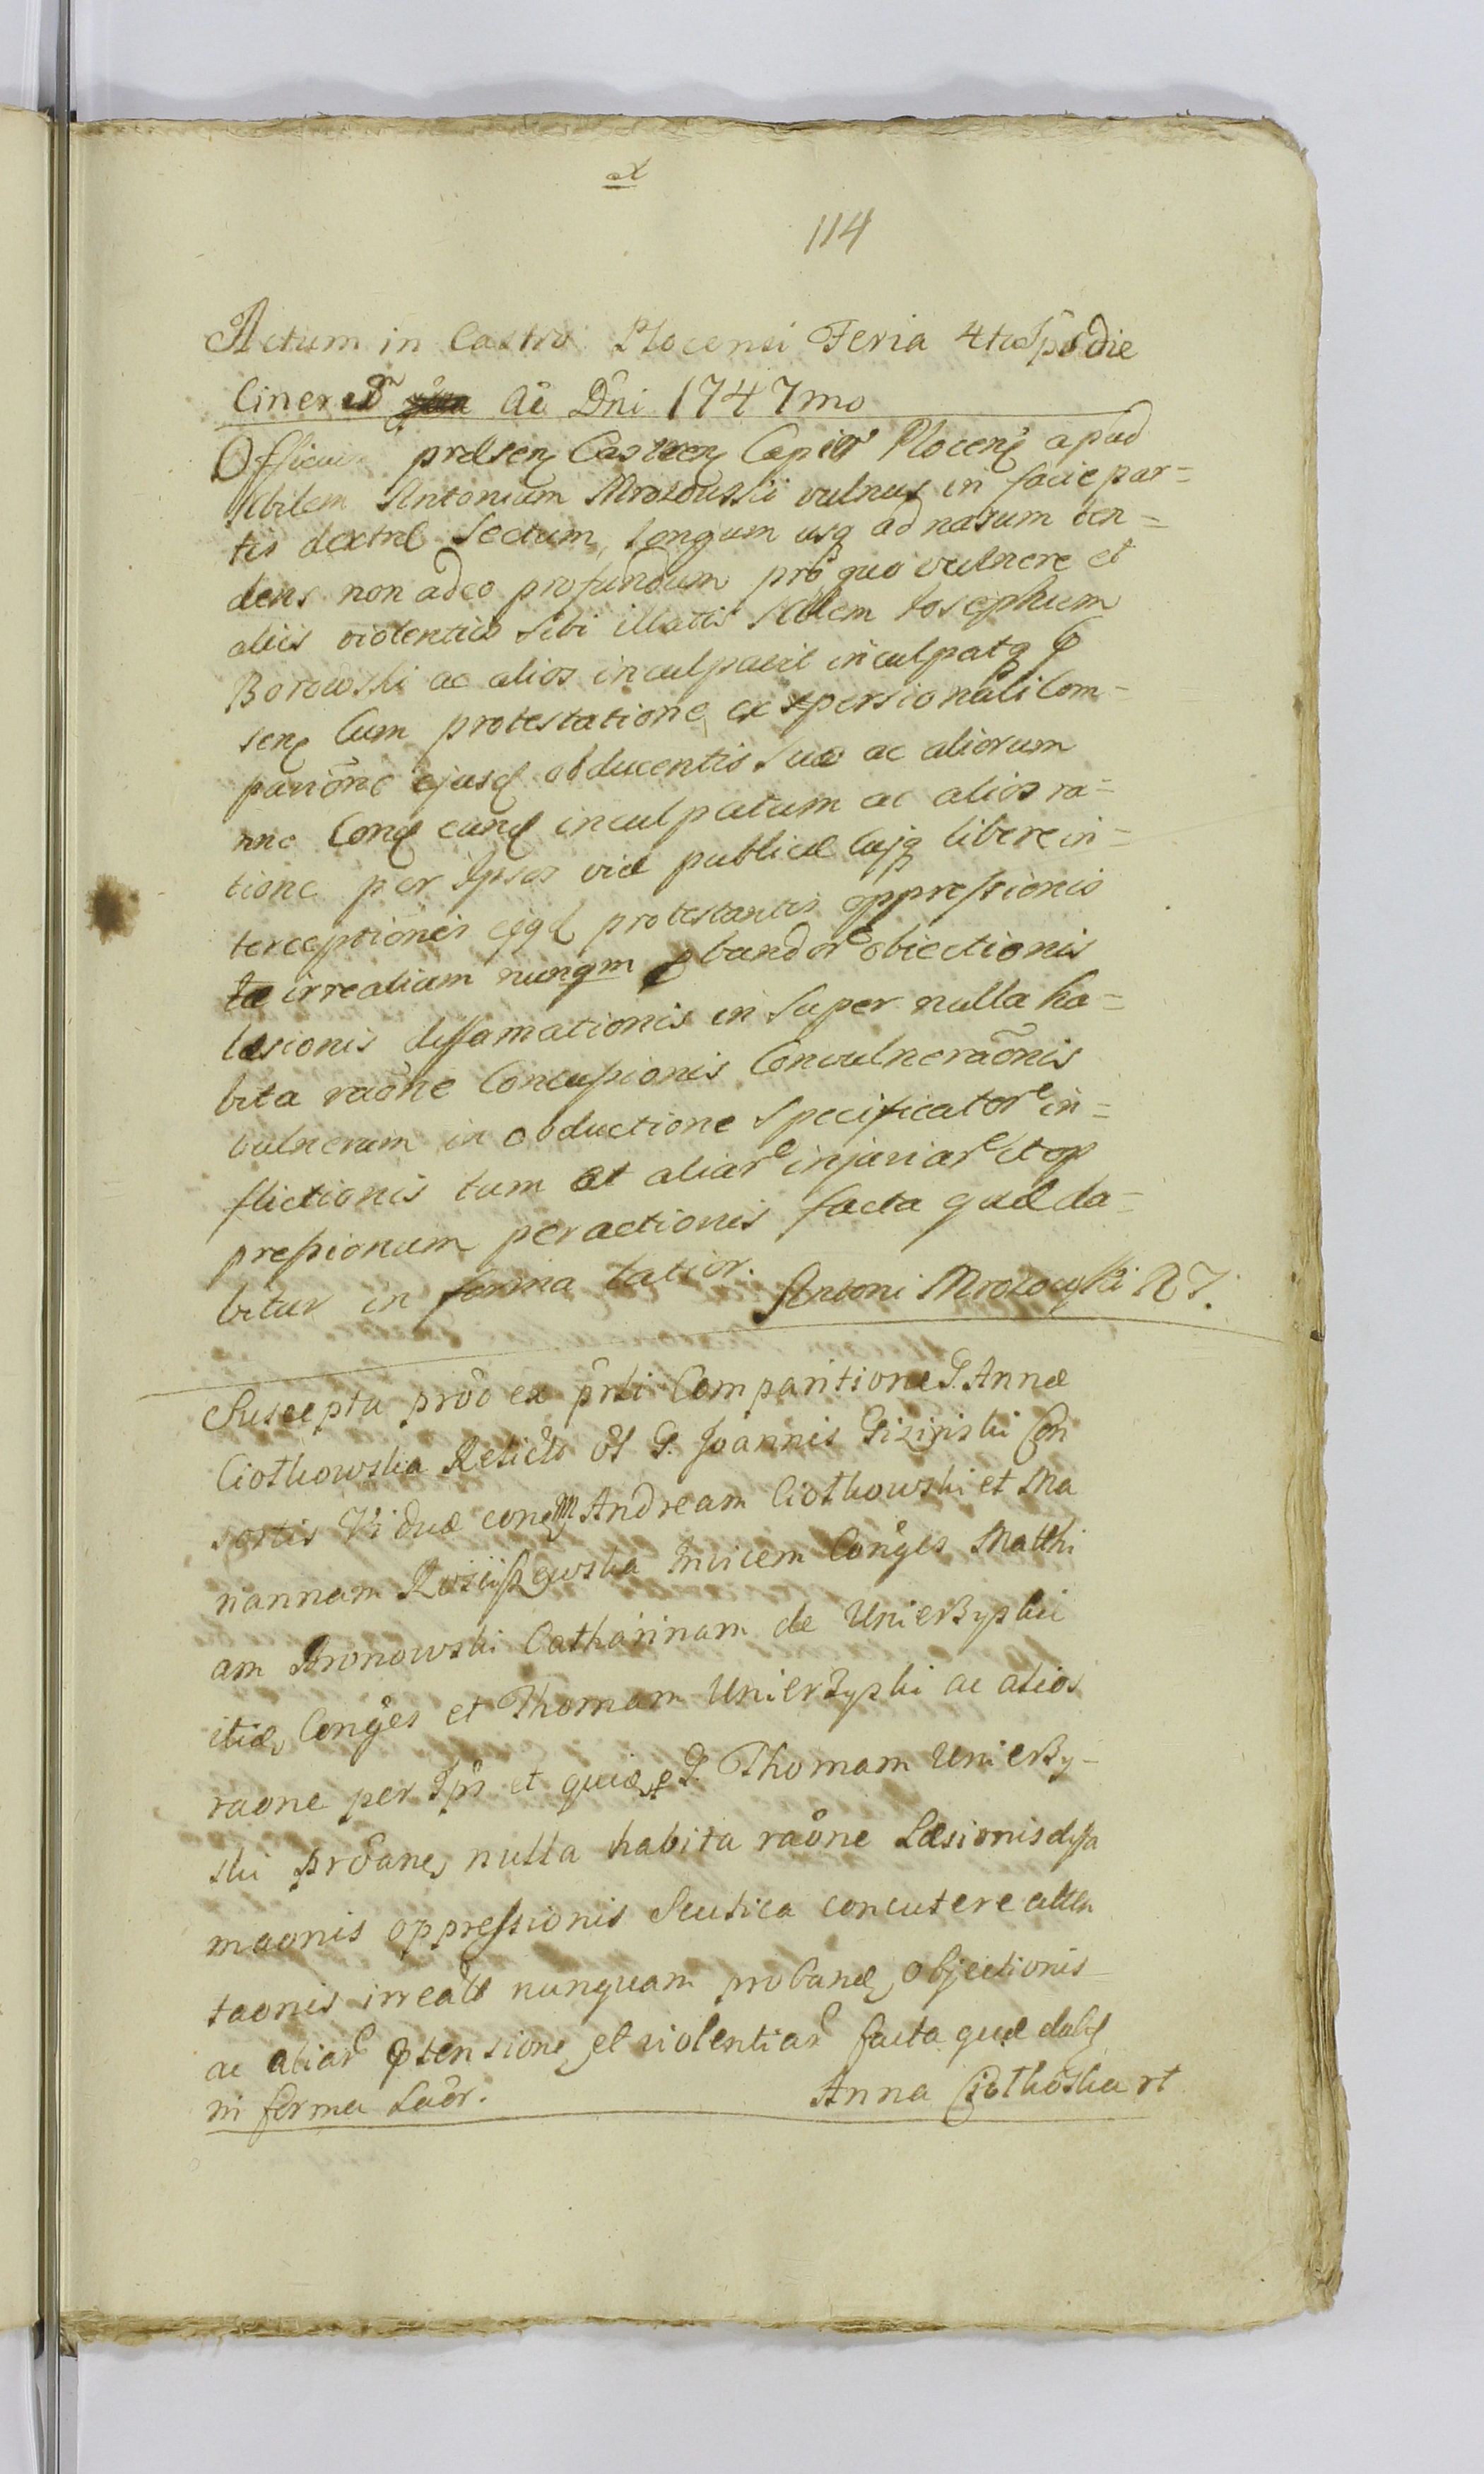 114
Actum in Castro Plocensi Feria 4ta Ipso die
Cinerũ Aõ Dni 1747mo
Officium prdsens Castren Capit Plocens apud
Nbilem Antonium Mrozowski vulnus in facie par=
tis dextræ Sectum, longum usq ad nasum ten=
dens non adeo profundum pro quo vulnere et
aliis violentiis sibi illatis Nblem Josephum
Borowski ac alios inculpavit inculpatq
sens Cum protestatione ex personali Com=
pariõne ejusd obducentis suo ac aliorum
nne Cond eund inculpatum ac alios ra=
tione per Ipsos viæ publicæ cujq libere in=
terceptionis ejqd protestantis oppressionis
irrealium nunqm pbandor obiectionis
læsionis diffamationis in super nulla ha=
bita raõne Concussionis Convulneraõnis
vulnerum in obductione specificator in=
flictionis tum et aliar injuriar et op
pressionum peractionis facta quæ da=
bitur in forma latior.
Antoni Mrozowski RT.
Suscepta prõo ex prli Comparitione G. Annæ
Ciothowska Relicto õl G. Joannis Gizinski Con
sortis Viduæ cone Andream Ciothowski et Ma
riannam Invicem Conges Matthi
am Bronowski Catharinam de Unierzyski
itid Conges et Thomam Unierzyski ac alios
raone per Ips et quid p G. Thomam Unierzy-
ski nulla habita raõne Læsionis diffa
maonis oppressionis Scutica concutere atten
taonis irreal nunquam proband objectionis
ac aliar ptensione et violentiar facta quæ dabit
in forma Laõr.
Anna Ciothoska rt